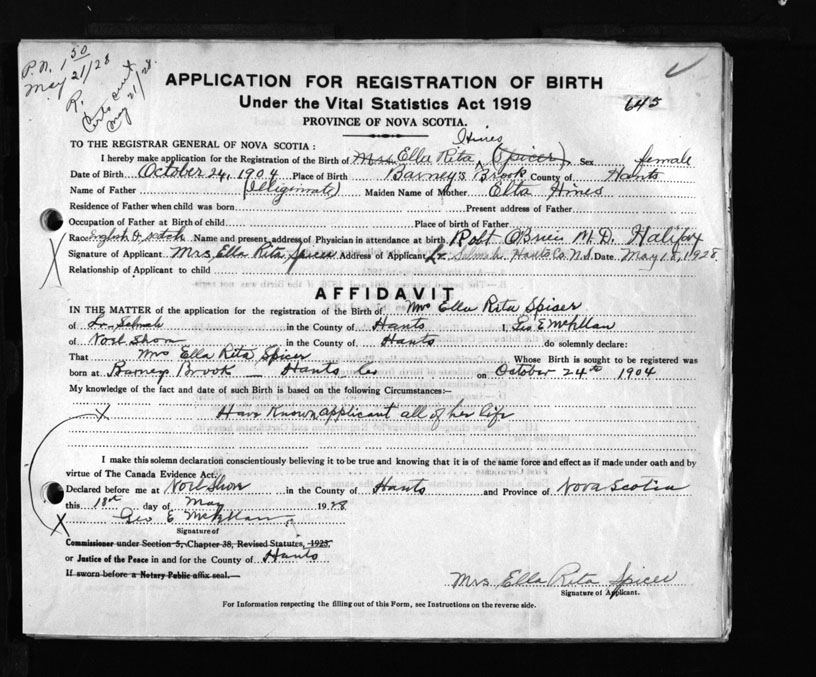 P.N. 1 50
May 21/28
R.
Certs sent
May 21/28.
APPLICATION FOR REGISTRATION OF BIRTH
Under the Vital Statistics Act 1919
645
PROVINCE OF NOVA SCOTIA.
TO THE REGISTRAR GENERAL OF NOVA SCOTIA :
Hines
I hereby make application for the Registration of the Birth of Mrs. Ella Rita (Spicer) Sex female
Date of Birth October 24, 1904 Place of Birth Barney's Brook County of Hants
Name of Father (Illegitimate) Maiden Name of Mother Etta Hines
Residence of Father when child was born Present address of Father
Occupation of Father at Birth of child Place of birth of Father
Race English & Scotch Name and present address of Physician in attendance at birth Robt O'Brien M.D. Halifax
Signature of Applicant Mrs. Ella Rita Spicer Address of Applicant Lr. Selmah Hants Co. N.S. Date May 18, 1928.
Relationship of Applicant to child
AFFIDAVIT
IN THE MATTER of the application for the registration of the Birth of Mrs Ella Rita Spicer
of Lr. Selmah in the County of Hants I, Geo E McLellan
of Noel Shore in the County of Hants do solemnly declare:
That Mrs Ella Rita Spicer Whose Birth is sought to be registered was
born at Barneys Brook Hants Co on October 24th 1904
My knowledge of the fact and date of such Birth is based on the following Circumstances:—
X Have Known applicant all of her life
I make this solemn declaration conscientiously believing it to be true and knowing that it is of the same force and effect as if made under oath and by
virtue of The Canada Evidence Act.
Declared before me at Noel Shore in the County of Hants and Province of Nova Scotia
this 18th day of May 1928
X Geo E McLellan
Signature of
Commissioner under Section 5, Chapter 38, Revised Statutes, 1923,
or Justice of the Peace in and for the County of Hants
If sworn before a Notary Public affix seal.—
Mrs Ella Rita Spicer
Signature of Applicant.
For Information respecting the filling out of this Form, see Instructions on the reverse side.